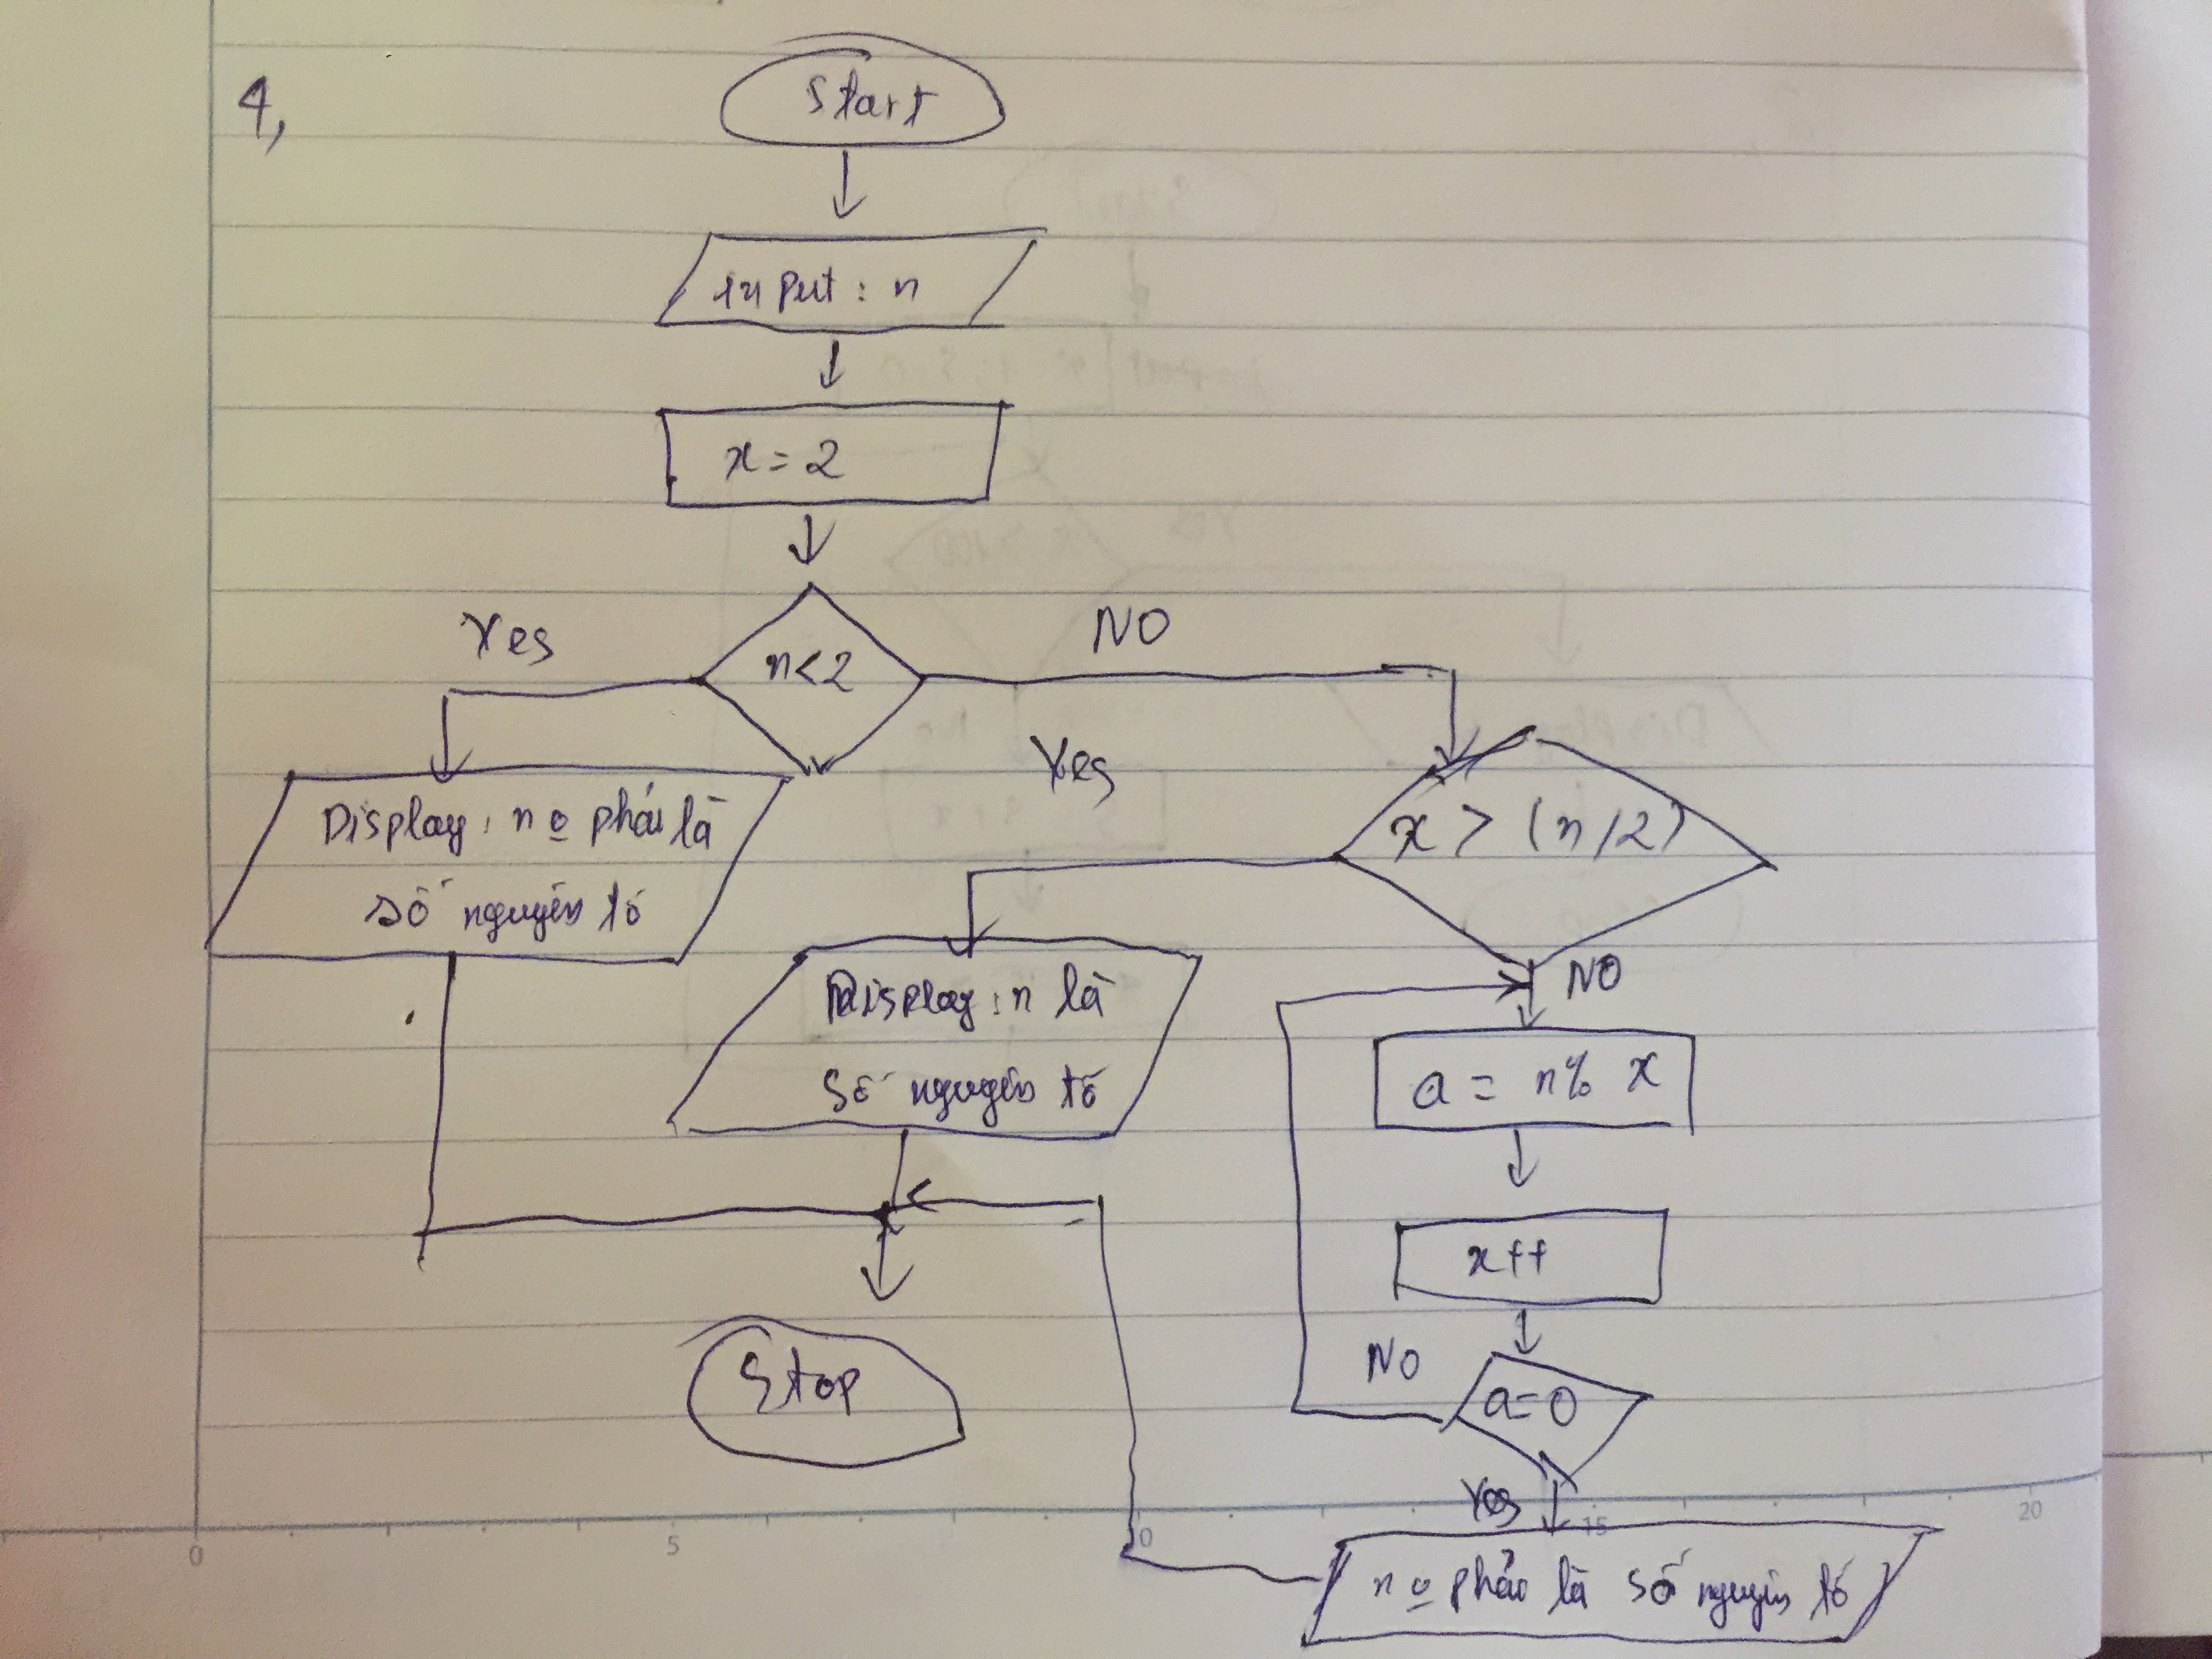 4,
Start
input : n
x = 2
n < 2
Yes
NO
Display : n o̲ phải là
số nguyên tố
x > (n / 2)
Yes
NO
Display : n là
Số nguyên tố
a = n % x
x++
a = 0
NO
Yes
n o̲ phải là số nguyên tố
Stop
0
5
10
15
20